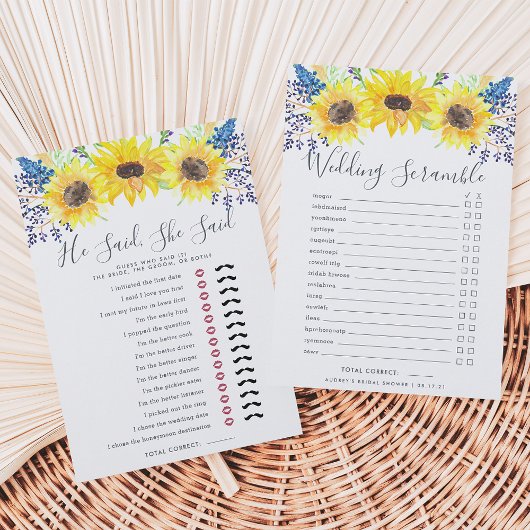 He Said, She Said
GUESS WHO SAID IT!
THE BRIDE, THE GROOM, OR BOTH?
I initiated the first date
I said I love you first
I met my future in laws first
I'm the early bird
I popped the question
I'm the better cook
I'm the better driver
I'm the better singer
I'm the better dancer
I'm the pickier eater
I'm the better listener
I picked out the ring
I chose the wedding date
I chose the honeymoon destination
TOTAL CORRECT:
Wedding Scramble
mogor
iabdmaisrd
yoonhmeno
rgrtisye
uqqoubt
ecotreepi
rowelf irlg
fleas
TOTAL CORRECT:
AUDREY'S BRIDAL SHOWER | 08.17.21